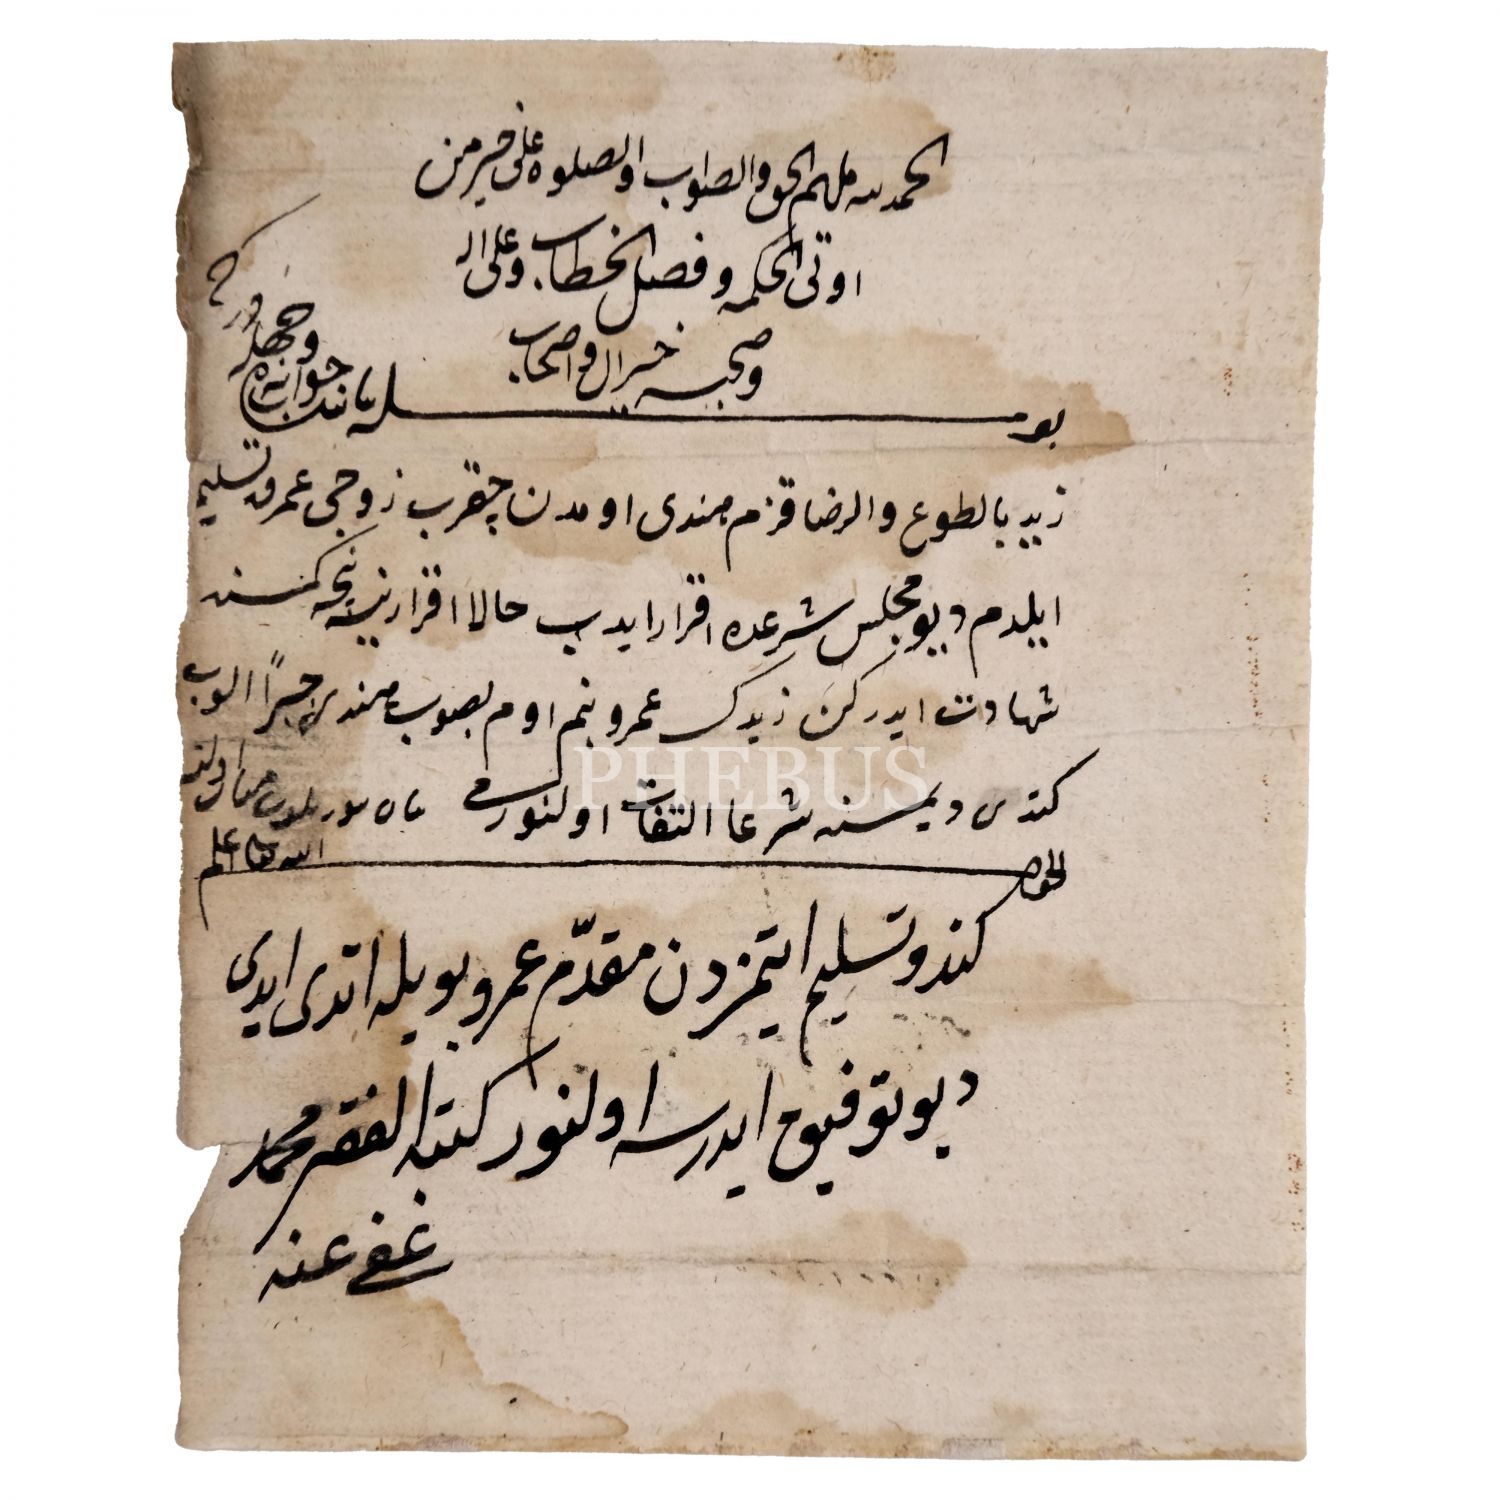 الحمد لله ملهم الحق والصواب والصلوه على خير من
اوتى الحكمه وفصل الخطاب وعلى اله
وصحبه خير ال واصحاب
بو مسئله بياننده جواب نه وجهله در كه
زيد بالطوع والرضا قزم هندى اومدن چقرب زوجى عمروه تسليم
ايلدم ديو مجلس شرعده اقرار ايدب حالا اقرارينه نيجه كمسنه
شهادت ايدركن زيدك عمرو بنم اوم بصوب هندى جبرًا الوب
كتدى ديمسنه شرعا التفات اولنورمى
الله اعلم
الجواب
كندو تسليم ايتمزدن مقدّم عمرو بويله اتدى ايدى
ديو توفيق ايدرسه اولنور كتبه الفقير محمد
عفى عنه
PHEBUS